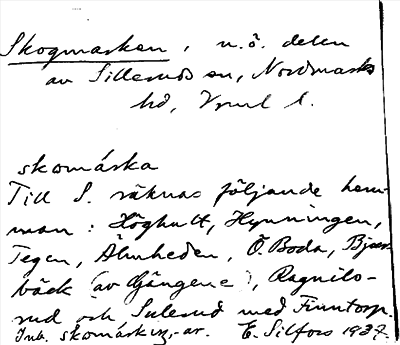 Skogmarken, n.ö. delen
av Sillerud sn, Nordmarks
hd, Vrml l.
skomárka
Till S. räknas följande hem-
man: Höghult, Hynningen,
Tegen, Älmheden, Ö. Boda, Bjur-
bäck (av Gängene), Ragnilo-
rud och Sulerud med Finntorp.
Inb. skomárkıŋ, -ar. E. Silfors 1937.